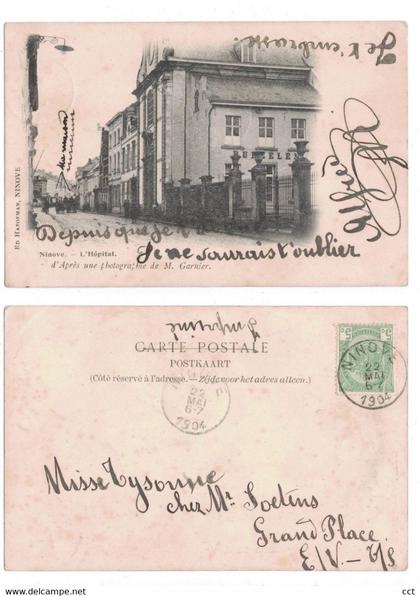 Je t'embrasse
ma maison
ED HANOEMAN, NINOVE
Alfred
Depuis que je t'a
Je ne saurais t'oublier
Ninove. — L'Hôpital.
d'Après une photographie de M. Garnier.
CARTE POSTALE
POSTKAART
(Côté réservé à l'adresse. — Zijde voor het adres alleen.)
NINOVE
22
MAI
6-7
1904
NINOVE
22
MAI
6-7
1904
Misse Lysonne
chez Mr Soetens
Grand Place
E/V.
cct